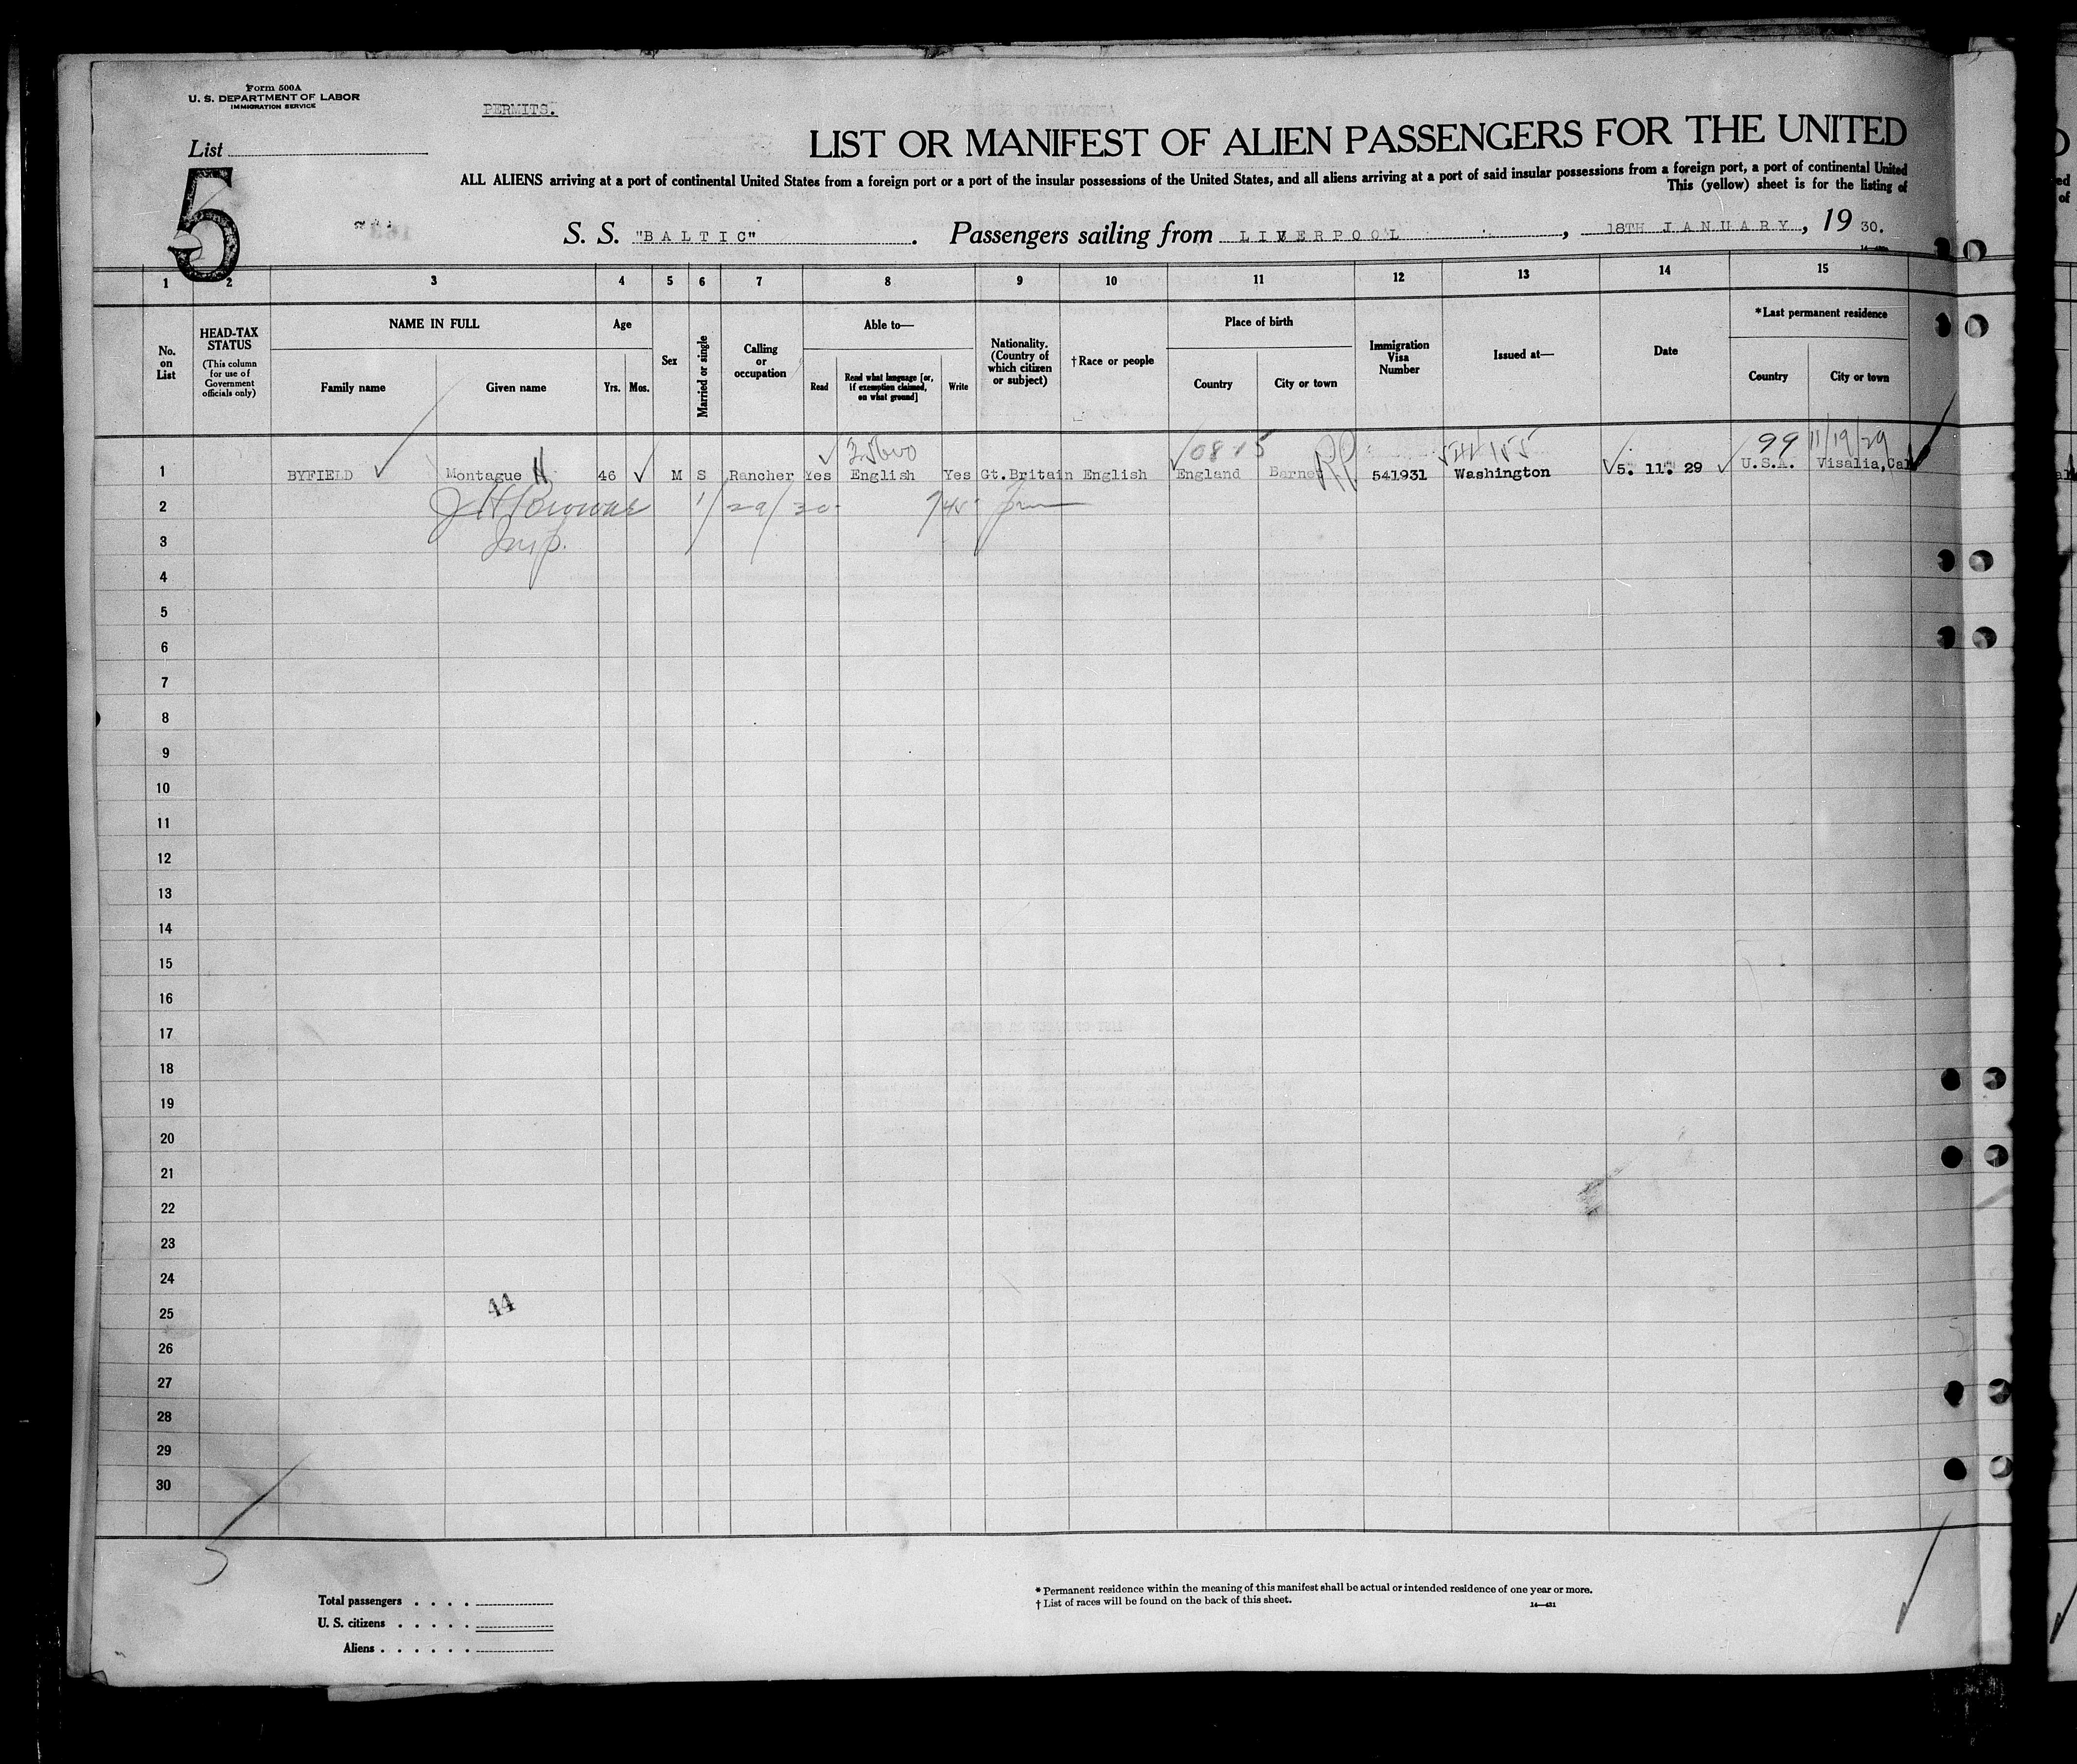 Form 500A
U. S. DEPARTMENT OF LABOR
IMMIGRATION SERVICE
PERMITS.
List
5
LIST OR MANIFEST OF ALIEN PASSENGERS FOR THE UNITED
ALL ALIENS arriving at a port of continental United States from a foreign port or a port of the insular possessions of the United States, and all aliens arriving at a port of said insular possessions from a foreign port, a port of continental United
This (yellow) sheet is for the listing of
S. S. "BALTIC". Passengers sailing from LIVERPOOL, 18TH JANUARY, 19 30.
1 2 3 4 5 6 7 8 9 10 11 12 13 14 15
No. on List
HEAD-TAX STATUS
(This column for use of Government officials only)
NAME IN FULL
Family name Given name
Age
Yrs. Mos.
Sex
Married or single
Calling or occupation
Able to—
Read
Read what language [or, if exemption claimed, on what ground]
Write
Nationality. (Country of which citizen or subject)
†Race or people
Place of birth
Country City or town
Immigration Visa Number
Issued at—
Date
*Last permanent residence
Country City or town
0815 99 11/19/29
1 BYFIELD Montague H 46 M S Rancher Yes English Yes Gt.Britain English England Barnet 541931 Washington 5. 11. 29 U.S.A. Visalia,Cal
2 1/29/30
3 Insp.
4
5
6
7
8
9
10
11
12
13
14
15
16
17
18
19
20
21
22
23
24
25 44
26
27
28
29
30
Total passengers . . . .
U. S. citizens . . . . .
Aliens . . . . . .
* Permanent residence within the meaning of this manifest shall be actual or intended residence of one year or more.
† List of races will be found on the back of this sheet.
14—431